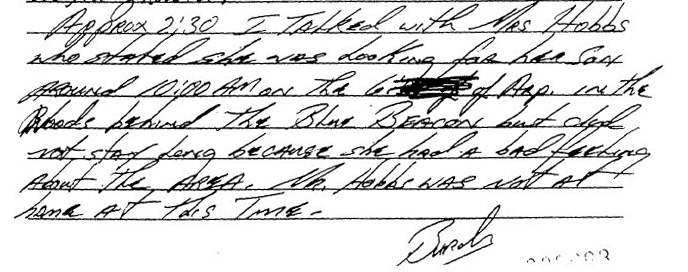 Approx 2:30 I Talked with Mrs Hobbs
who stated she was Looking for her Son
around 10:00 AM on the 6 of Arp. in the
Woods behind The Blue BEACON but did
not stay long because she had a bad feeling
About The AREA. Mr. Hobbs was not at
home AT This Time.